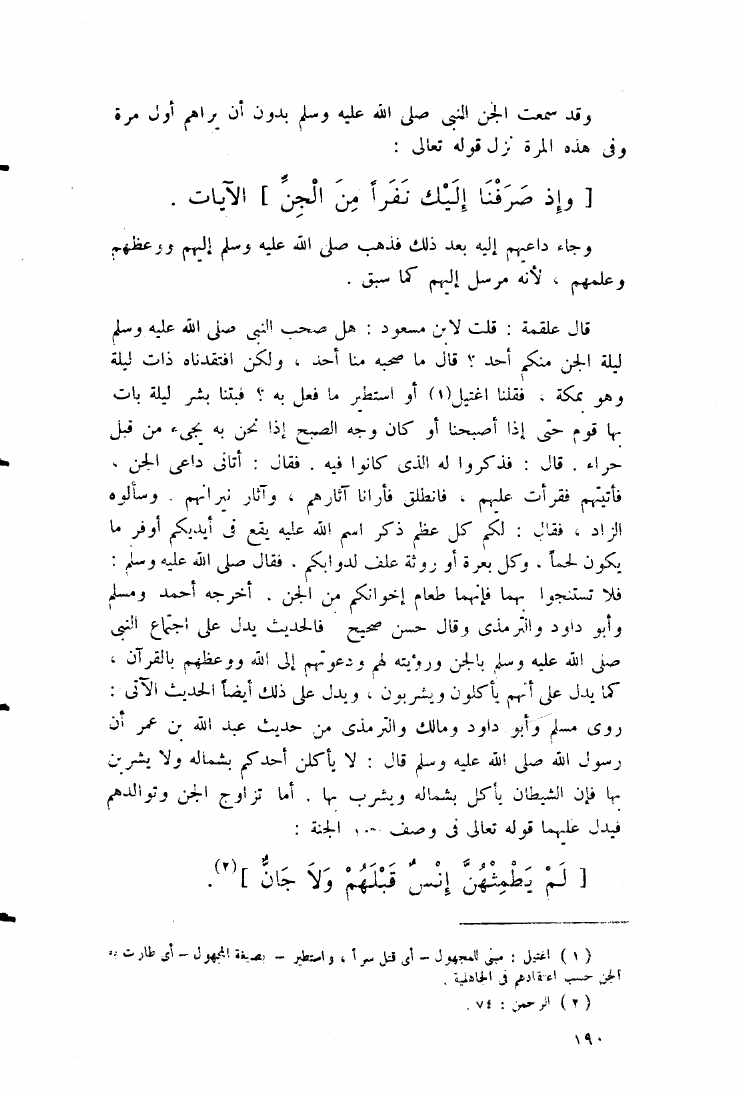 وقد سمعت الجن النبى صلى الله عليه وسلم بدون أن يراهم أول مرة
وفى هذه المرة نزل قوله تعالى :
[ وإِذ صَرَفْنَا إِلَيْكَ نَفَراً مِنَ الْجِنِّ ] الآيات .
وجاء داعيهم إليه بعد ذلك فذهب صلى الله عليه وسلم إليهم ووعظهم
وعلمهم ، لأنه مرسل إليهم كما سبق .
قال علقمة : قلت لابن مسعود : هل صحب النبى صلى الله عليه وسلم
ليلة الجن منكم أحد ؟ قال ما صحبه منا أحد ، ولكن افتقدناه ذات ليلة
وهو بمكة ، فقلنا اغتيل(١) أو استطير ما فعل به ؟ فبتنا بشر ليلة بات
بها قوم حتى إذا أصبحنا أو كان وجه الصبح إذا نحن به يجىء من قبل
حراء . قال : فذكروا له الذى كانوا فيه . فقال : أتانى داعى الجن ،
فأتيتهم فقرأت عليهم ، فانطلق فأرانا آثارهم ، وآثار نيرانهم . وسألوه
الزاد ، فقال : لكم كل عظم ذكر اسم الله عليه يقع فى أيديكم أوفر ما
يكون لحماً . وكل بعرة أو روثة علف لدوابكم . فقال صلى الله عليه وسلم :
فلا تستنجوا بهما فإنهما طعام إخوانكم من الجن . أخرجه أحمد ومسلم
وأبو داود والترمذى وقال حسن صحيح فالحديث يدل على اجتماع النبى
صلى الله عليه وسلم بالجن ورؤيته لهم ودعوتهم إلى الله ووعظهم بالقرآن ،
كما يدل على أنهم يأكلون ويشربون ، ويدل على ذلك أيضاً الحديث الآتى :
روى مسلم وأبو داود ومالك والترمذى من حديث عبد الله بن عمر أن
رسول الله صلى الله عليه وسلم قال : لا يأكلن أحدكم بشماله ولا يشربن
بها فإن الشيطان يأكل بشماله ويشرب بها . أما تزاوج الجن وتوالدهم
فيدل عليهما قوله تعالى فى وصف الجنة :
[ لَمْ يَطْمِثْهُنَّ إِنْسٌ قَبْلَهُمْ وَلاَ جَانٌّ ](٢).
(١) اغتيل : مبنى للمجهول – أى قتل سراً ، واستطير – بصيغة المجهول – أى طارت
الجن حسب اعتقادهم فى الجاهلية .
(٢) الرحمن : ٧٤ .
١٩٠